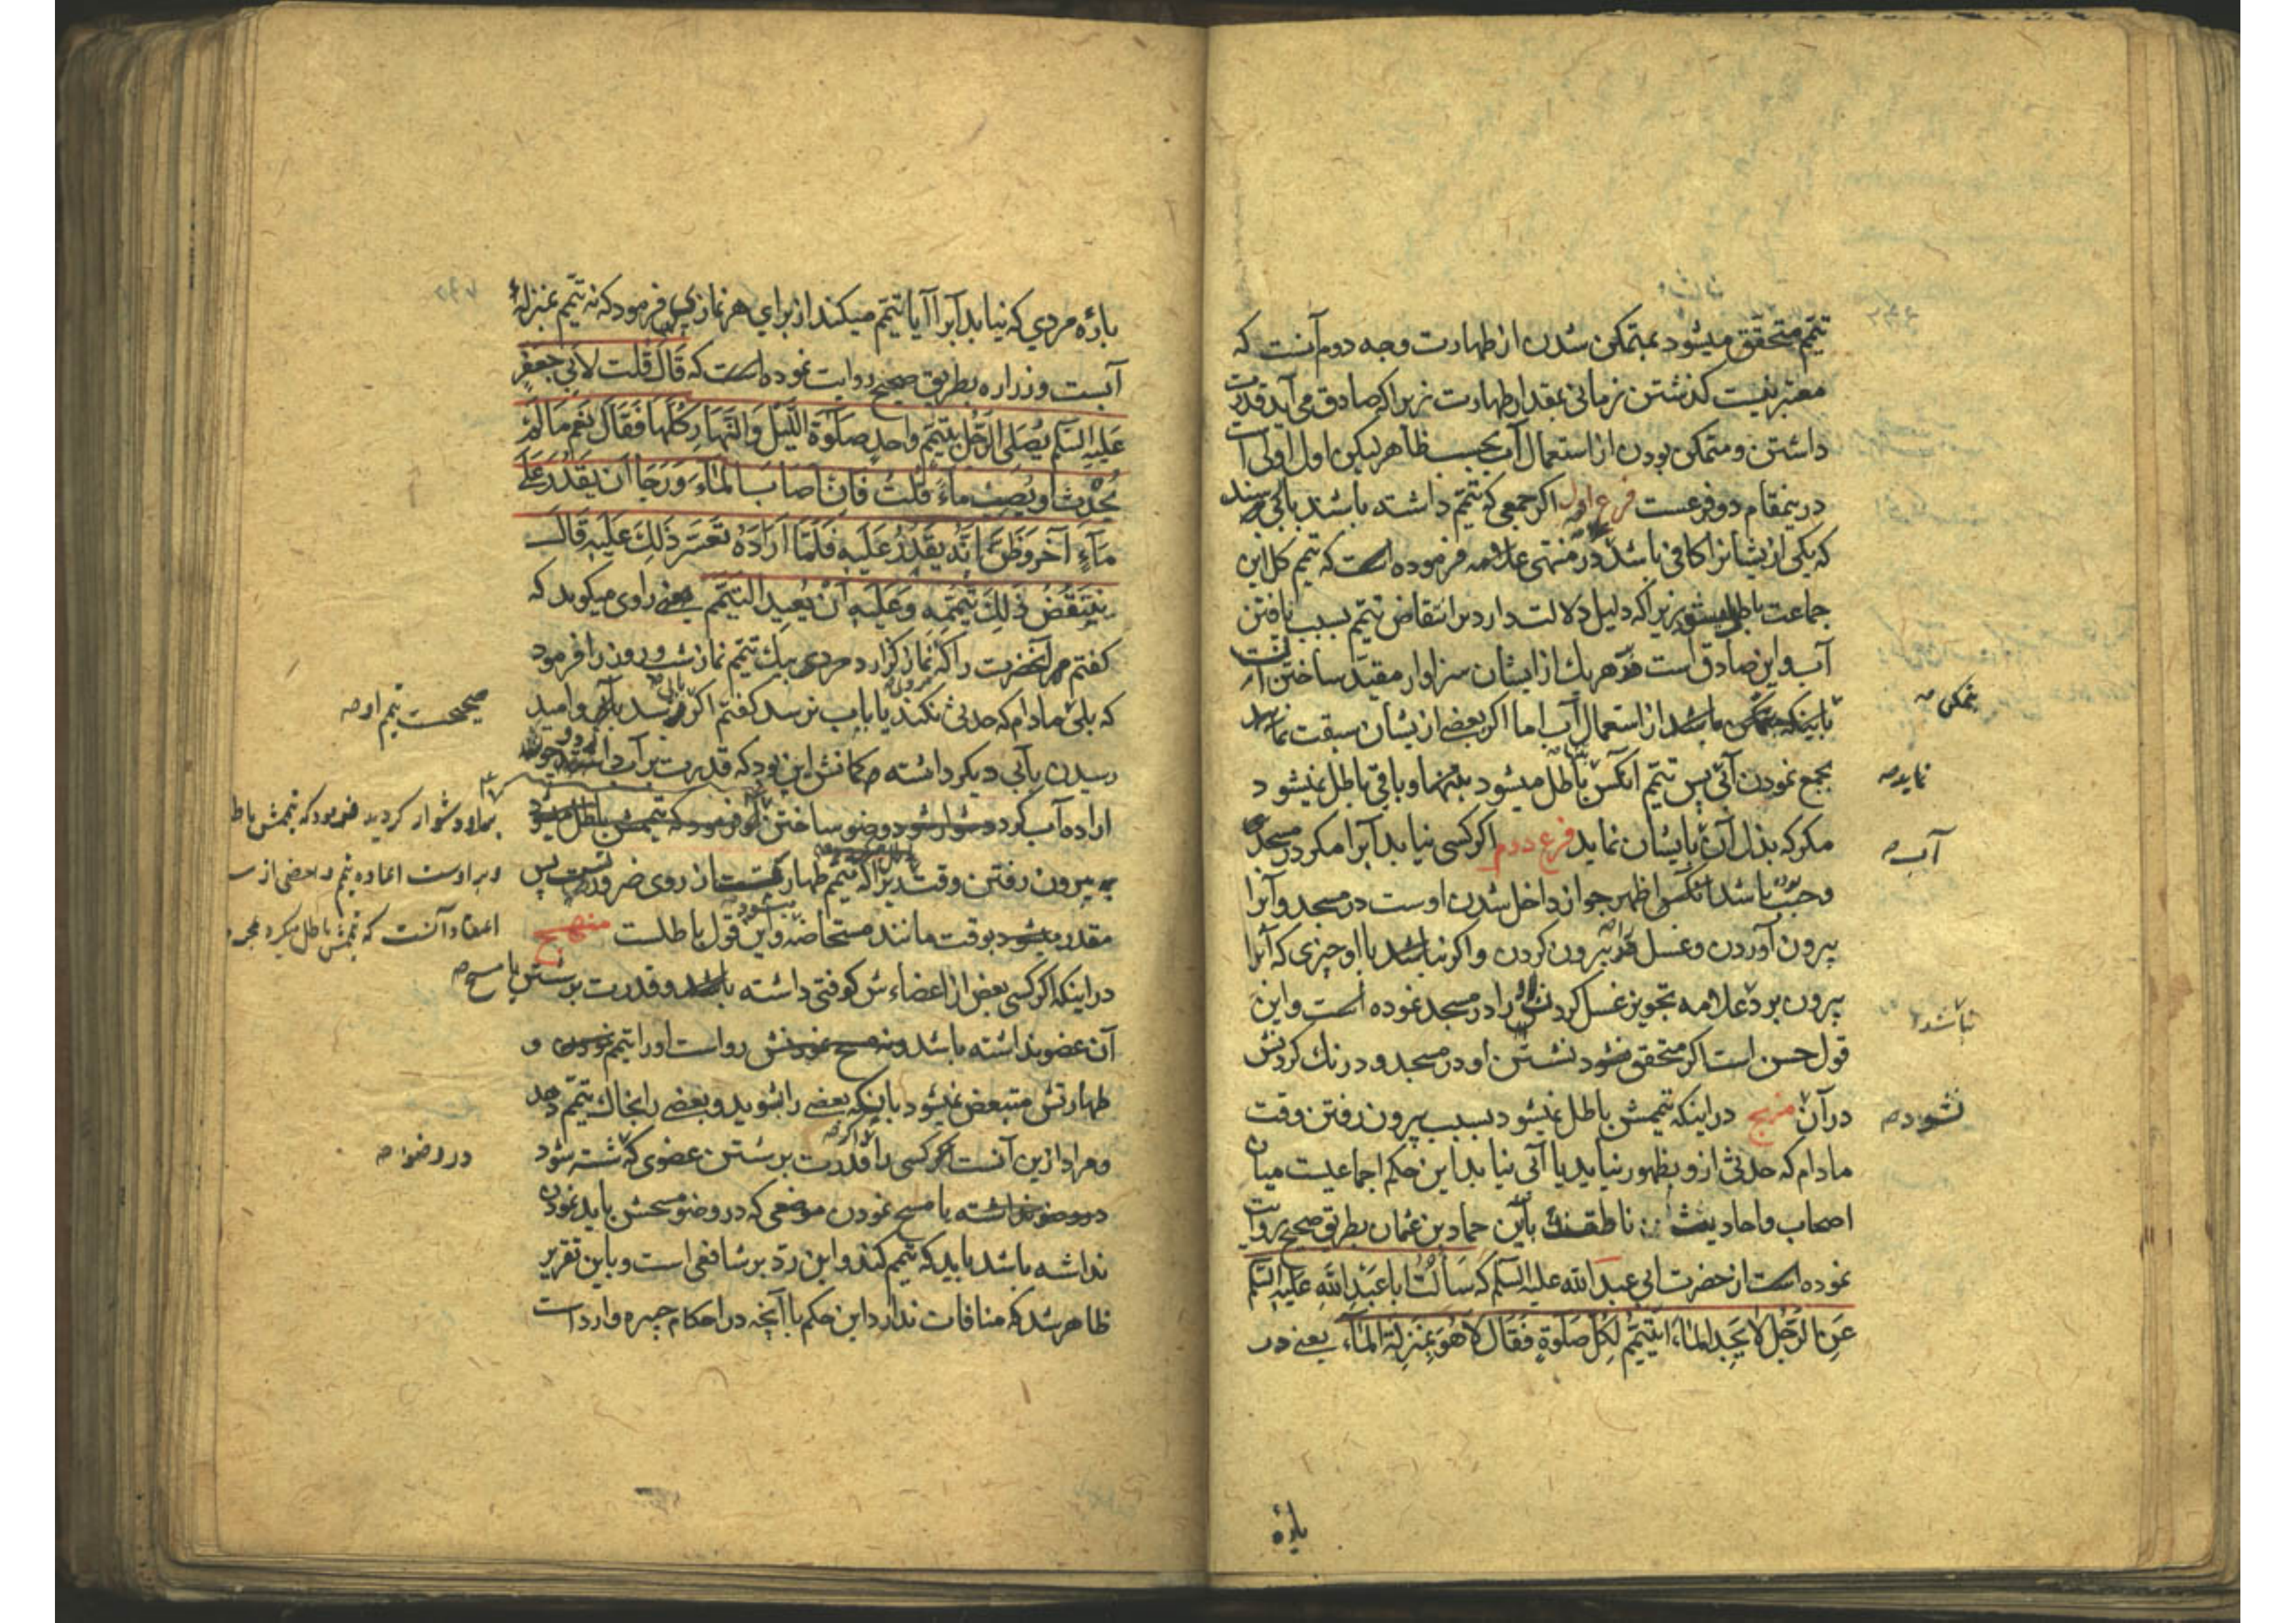 تیمّم متحقق میشود بمتمکن شدن از طهارت وجه دوم آنست که
معتبر نیست کذشتن زمانی بمقدار طهارت زیرا که صادق می آید قدرت
داشتن و متمکن بودن از استعمال آب بحسب ظاهر لیکن اول اولی است
درینمقام دو فرعست فرع اول اکر جمعی که تیمّم داشته باشند بآبی رسند
که یکی از یشانرا کافی باشد در منتهی علامه فرموده است که تیمم کل این
جماعت باطل میشود زیرا که دلیل دلالت دارد بر انتقاض تیمّم بسبب یافتن
آب و این صادق است هر یک از ایشان سزاوار مقیّد ساختن آنست
باینکه متمکن باشد از استعمال آب اما اکر بعضی از یشان سبقت نماید
بجمع نمودن آبی پس تیمّم آنکس باطل میشود بتنهما و باقی باطل نمیشود
مکر که بذل آن بایشان نماید فرع دوم اکر کسی نیابد آبرا مکر در مسجد
و جنب باشد آنکس اظهر جواز داخل شدن اوست در مسجد و آبرا
بیرون آوردن و غسل در بیرون کردن و اکر نباشد با او چیزی که آنرا
بیرون برد علامه تجویز غسل کردنش را در مسجد نموده است و این
قول حسن است اکر متحقق نشود نشستن او در مسجد و درنك کردنش
در آن منهج در اینکه تیممش باطل نمیشود بسبب بیرون رفتن وقت
مادام که حدثی از و بظهور نیاید یا آبی نیابد این حکم اجماعیست میان
اصحاب و احادیث ناطقند باین حماد بن عثمان بطریق صحیح روایت
نموده است از حضرت ابی عبد الله علیه السلم که سَأَلْتُ اَبا عَبْدِ اللهِ عَلَیْهِ السَّلَم
عَنِ الرَّجُلِ لاَ یَجِدُ الْمَاءَ اَیَتَیَمَّمُ لِکُلِّ صَلٰوةٍ فَقَالَ لاَ هُوَ بِمَنْزِلَةِ الْمَاءِ یعنی در
بارۀ
بتمکن صه
نماید صه
آب صه
نباشد
نشود صه
بارۀ مردی که نیابد آبرا آیا تیمّم میکند از برای هر نماز پس فرمود که نه تیمّم بمنزلۀ
آبست و زراره بطریق صحیح روایت نموده است که قَالَ قُلت لِأَبی جَعْفَرٍ
عَلَیْهِ السَّلَم یُصَلِّی الرَّجُلُ بِتَیَمُّمٍ وَاحِدٍ صَلٰوةَ اللَّیْلِ وَالنَّهَارِ کُلَّهَا فَقَالَ نَعَمْ مَا لَمْ
یُحْدِثْ اَوْ یُصِبْ مَاءً قُلْتُ فَاِنْ اَصَابَ الْمَاءَ وَرَجَا اَنْ یَقْدِرَ عَلَی
مَاءٍ آخَرَ وَظَنَّ اَنَّهُ یَقْدِرُ عَلَیْهِ فَلَمَّا اَرَادَهُ تَعَسَّرَ ذَلِكَ عَلَیْهِ قَالَ
یَنْتَقِضُ ذَلِكَ تَیَمُّمَهُ وَعَلَیْهِ اَنْ یُعِیدَ التَّیَمُّمَ یعنی راوی میکوید که
کفتم مر آنحضرت را که نماز کزارد مردی بیك تیمّم نماز شب و روز را فرمود
که بلی مادام که حدثی نکند یا بآب نرسد کفتم اکر برسد بآب و امید
رسیدن بآبی دیکر داشته و کمانش این بود که قدرت بر آن دارد چون
اراده آب کرد دشوار شود وضو ساختن او فرمود که تیممش باطل میشود
به بیرون رفتن وقت زیرا که تیمّم طهارتست از روی ضرورت پس
مقدر میشود بوقت مانند مستحاضه و این قول باطلست منهج
در اینکه اکر کسی بعض از اعضاءش کوفتی داشته باشد و قدرت بر شستن یا مسح صه
آن عضو نداشته باشد و نه مسح نمودنش رواست او را تیمّم نمودن و
طهارتش متبعض نمیشود باینکه بعضی را بشوید و بعضی را بخاك تیمّم دهد
و مراد ازین آنست که اکر کسی را قدرت بر شستن عضوی که شسته شود
در وضو نداشته یا مسح نمودن موضعی که در وضو مسحش باید نمودن
نداشته باشد باید که تیمّم کند و این ردّ بر شافعی است و باین تقریر
ظاهر شد که منافات ندارد این حکم با آنچه در احکام جبیره وارد است
صحیحست تیمم او صه
بر او دشوار کردید فرمود که تیممش باطل
و بر اوست اعاده تیمم و بعضی از
اعتقاد آنست که تیممش باطل میکردد
در وضو صه